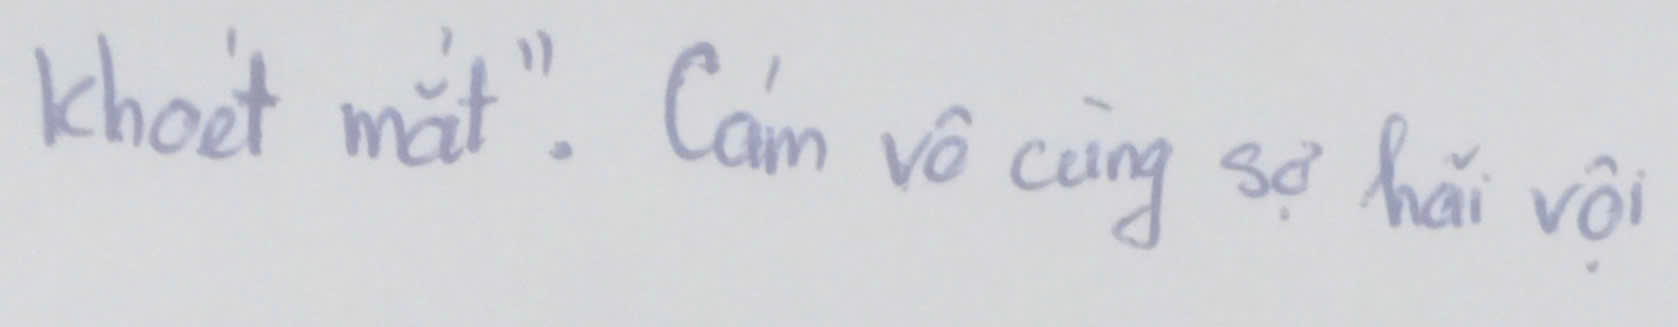 khoét mắt". Cám vô cùng sợ hãi vội